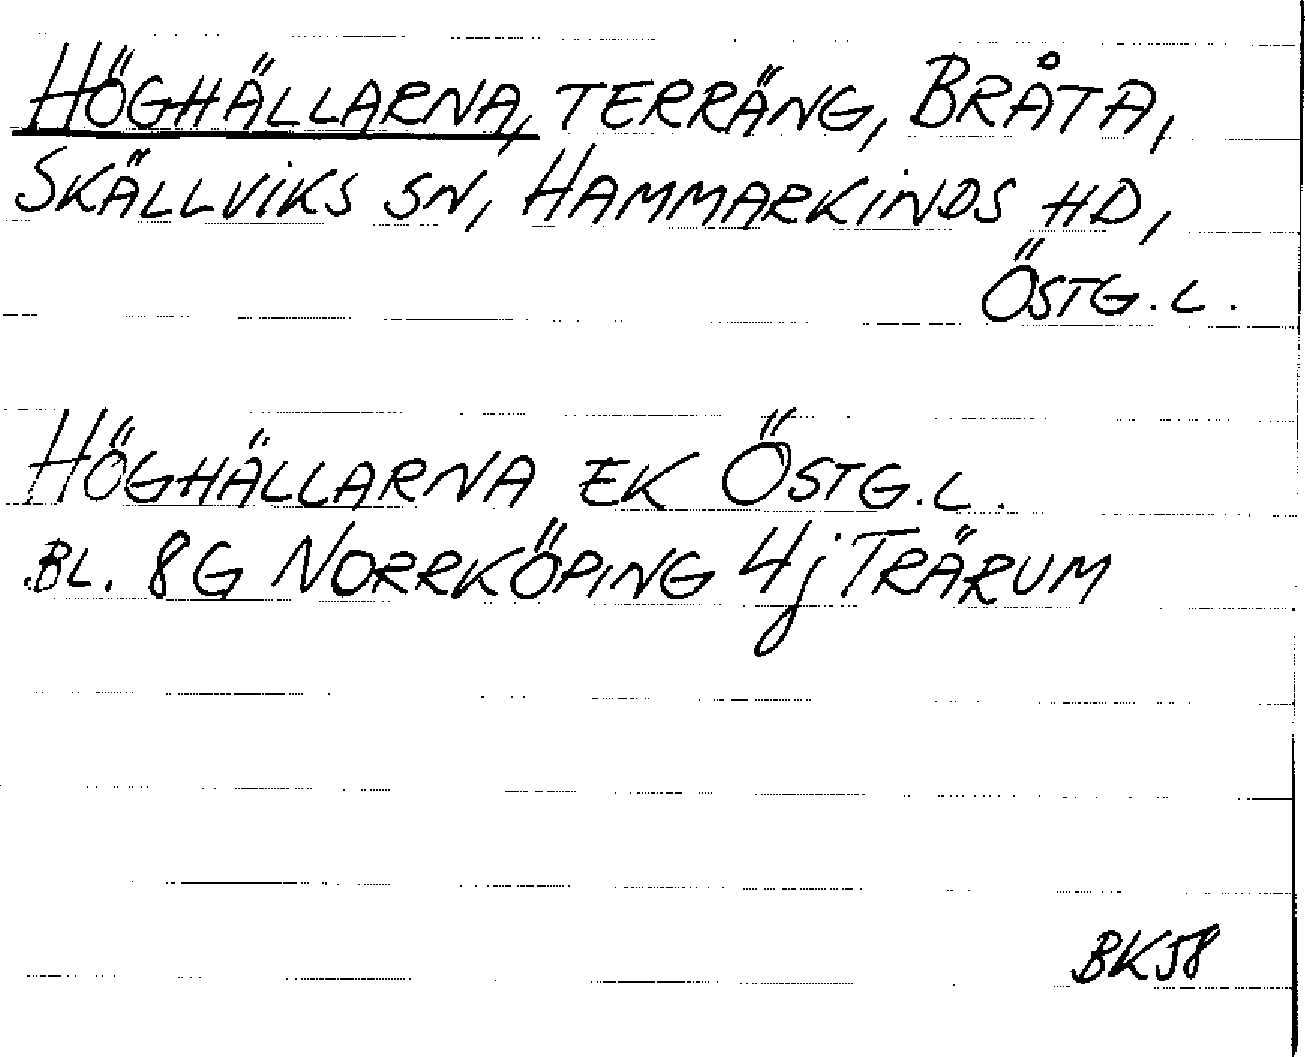 HÖGHÄLLARNA, TERRÄNG, BRÅTA,
SKÄLLVIKS SN, HAMMARKINDS HD,
ÖSTG.L.
HÖGHÄLLARNA EK ÖSTG.L.
BL. 8G NORRKÖPING 4j TRÄRUM
BK58